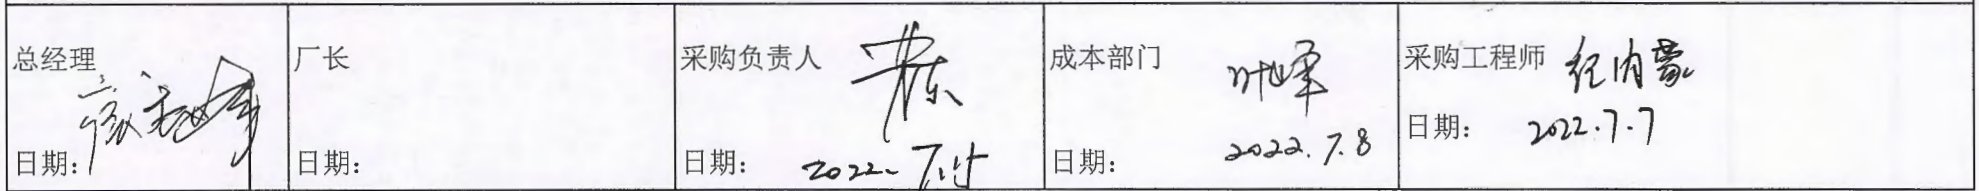 总经理
日期:
厂长
日期:
采购负责人
日期: 2022.7.15
成本部门 叶军
日期: 2022.7.8
采购工程师 纪内蒙
日期: 2022.7.7